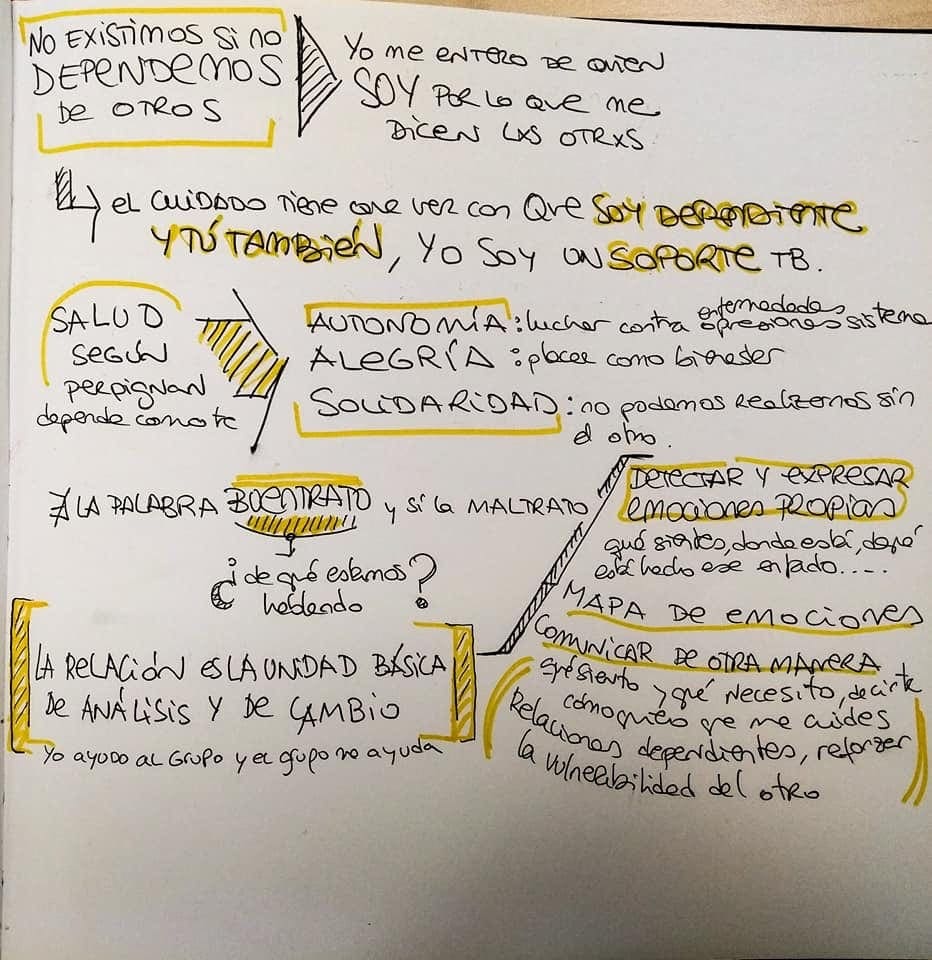 NO EXISTIMOS Si NO
DEPENDEMOS
DE OTROS
Yo me ENTERO DE QUIEN
SOY POR LO QUE me
DICEN LXS OTRXS
el CUIDADO Tiene QUE VER CON QUE SOY DEPENDIENTE
Y TÚ TAMBIÉN, YO SOY UN SOPORTE TB.
SALUD
SEGÚN
PERPIGNAN
depende como te
AUTONOMÍA: luchar contra enfermedades, opresiones, sistema
ALEGRÍA: placer como bienestar
SOLIDARIDAD: no podemos realizarnos sin
el otro.
∄ LA PALABRA BUENTRATO y sí la MALTRATO
¿de qué estamos
hablando?
LA RELACIÓN ES LA UNIDAD BÁSICA
DE ANÁLISIS Y DE CAMBIO
Yo ayudo al GRUPO y el grupo me ayuda
DETECTAR Y EXPRESAR
emociones PROPIAS
qué sientes, donde está, de qué
está hecho ese enfado....
MAPA DE emociones
COMUNICAR DE OTRA MANERA
qué siento y qué necesito, decirte
cómo quiero que me cuides
Relaciones dependientes, reforzar
la vulnerabilidad del otro